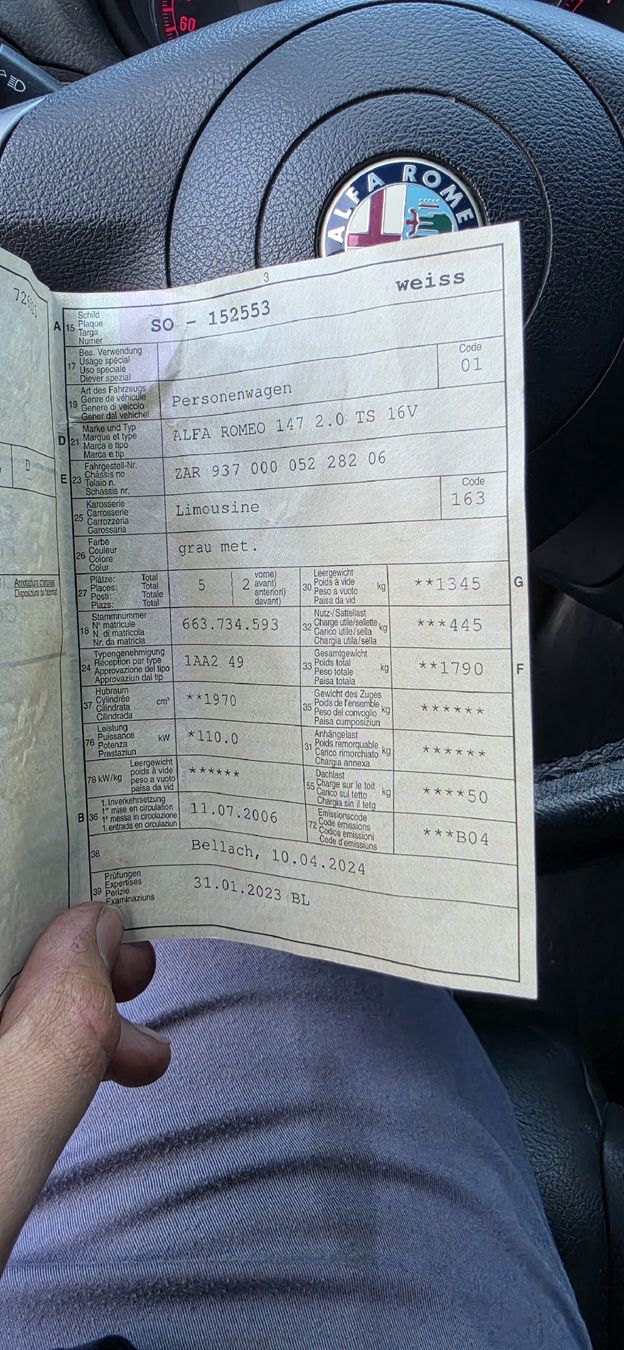 60
ALFA ROMEO
72603
D
3
A 15 Schild
Plaque
Targa
Numer
SO - 152553 weiss
17 Bes. Verwendung
Usage spécial
Uso speciale
Diever spezial
Code
01
19 Art des Fahrzeugs
Genre de véhicule
Genere di veicolo
Gener dal vehichel
Personenwagen
D 21 Marke und Typ
Marque et type
Marca e tipo
Marca e tip
ALFA ROMEO 147 2.0 TS 16V
E 23 Fahrgestell-Nr.
Châssis no
Telaio n.
Schassis nr.
ZAR 937 000 052 282 06
25 Karosserie
Carrosserie
Carrozzeria
Carossaria
Limousine
Code
163
26 Farbe
Couleur
Colore
Colur
grau met.
27 Plätze: Total
Places: Total
Posti: Totale
Plazs: Total
5 2 vorne)
avant)
anteriori)
davant)
30 Leergewicht
Poids à vide kg
Peso a vuoto
Paisa da vid
**1345 G
18 Stammnummer
N° matricule
N. di matricola
Nr. da matricla
663.734.593
32 Nutz-/Sattellast
Charge utile/sellette kg
Carico utile/sella
Chargia utila/sella
***445
24 Typengenehmigung
Réception par type
Approvazione del tipo
Approvaziun dal tip
1AA2 49
33 Gesamtgewicht
Poids total kg
Peso totale
Paisa totala
**1790 F
37 Hubraum
Cylindrée cm³
Cilindrata
Cilindrada
**1970
35 Gewicht des Zuges
Poids de l'ensemble kg
Peso del convoglio
Paisa cumposiziun
******
76 Leistung
Puissance kW
Potenza
Prestaziun
*110.0
31 Anhängelast
Poids remorquable kg
Carico rimorchiato
Chargia annexa
******
78 kW/kg Leergewicht
poids à vide
peso a vuoto
paisa da vid
******
55 Dachlast
Charge sur le toit kg
Carico sul tetto
Chargia sin il tetg
****50
B 36 1. Inverkehrsetzung
1re mise en circulation
1a messa in circolazione
1. entrada en circulaziun
11.07.2006
72 Emissionscode
Code émissions
Codice emissioni
Code d'emissiuns
***B04
38 Bellach, 10.04.2024
39 Prüfungen
Expertises
Perizie
Examinaziuns
31.01.2023 BL